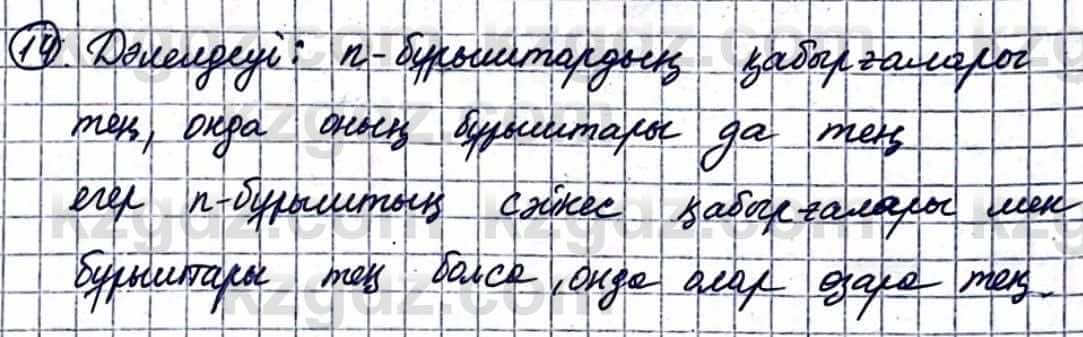 14. Дәлелдеуі: n-бұрыштардың қабырғалары
тең, онда оның бұрыштары да тең
егер n-бұрыштың сәйкес қабырғалары мен
бұрыштары тең болса, онда олар өзара тең.